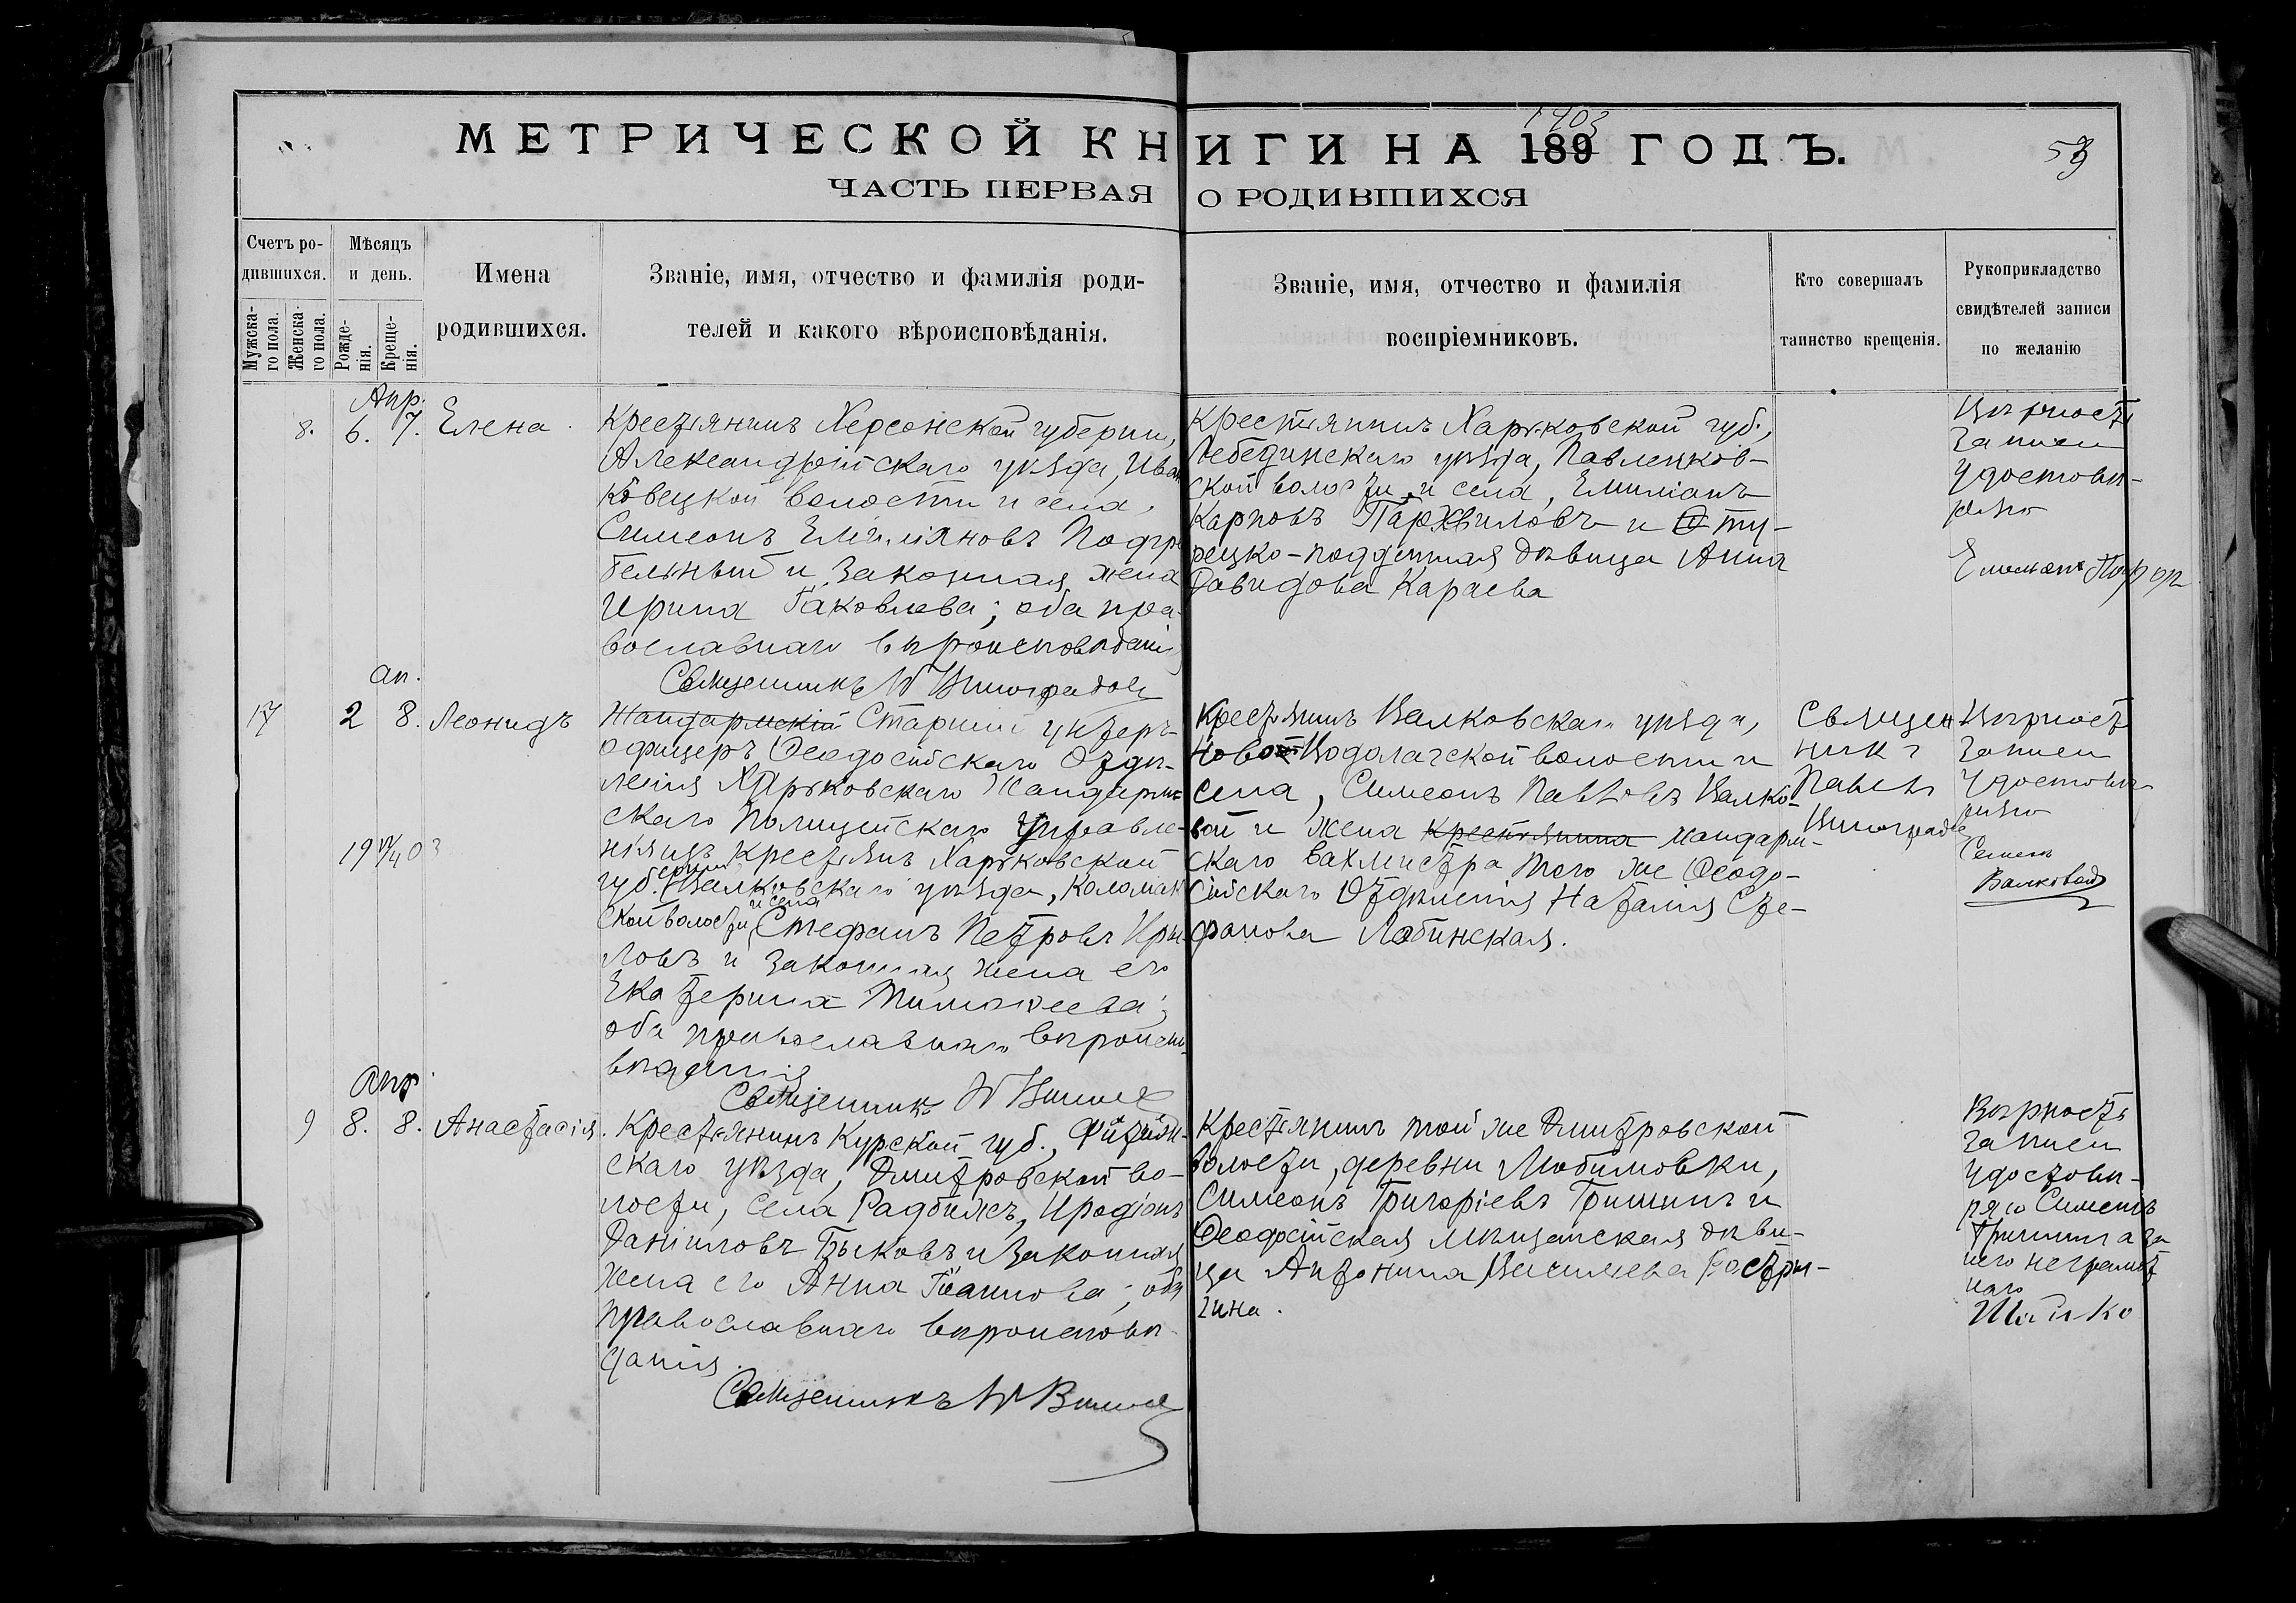 1903
МЕТРИЧЕСКОЙ КНИГИ НА 189 ГОДЪ.
ЧАСТЬ ПЕРВАЯ О РОДИВШИХСЯ
Счетъ родившихся.
Мужскаго пола.
Женскаго пола.
Мѣсяцъ и день.
Рожденія.
Крещенія.
Имена
родившихся.
Званіе, имя, отчество и фамилія роди-
телей и какого вѣроисповѣданія.
Званіе, имя, отчество и фамилія
воспріемниковъ.
Кто совершалъ
таинство крещенія.
Рукоприкладство
свидѣтелей записи
по желанію
Апр.
8. 6. 7. Елена
Крестьянинъ Херсонской губерніи,
Александрійскаго уѣзда, Иван
ковецкой волости и села,
Симеонъ Емиліяновъ Подгре
бельный и законная жена
Ирина Іаковлева; оба пра-
вославнаго вѣроисповѣданія
Священникъ П Виноградовъ
Крестьянинъ Харьковской губ.,
Лебединскаго уѣзда, Павленков-
ской волости и села, Емиліанъ
Карповъ Пархвиловъ и ту-
рецко-подданная дѣвица Анна
Давидова Караева
Вѣрность
записи
удостовѣ-
ряю
ап.
17 2 8. Леонидъ
19 03
Жандармскій Старшій унтеръ-
офицеръ Ѳеодосійскаго Отдѣ-
ленія Харьковскаго Жандарм-
скаго Полицейскаго Управле-
нія изъ крестьянъ Харьковской
губ. Валковскаго уѣзда, Коломак
ской волости и села Стефанъ Петровъ Кры
ловъ и законная жена его
Екатерина Тимоѳеева;
оба православнаго вѣроиспо-
вѣданія
Священникъ П Виногр
Крестьянинъ Валковскаго уѣзда,
Ново Водолагской волости и
села, Симеонъ Павловъ Валко-
вой и жена крестьянина жандарм-
скаго вахмистра того же Ѳеодо-
сійскаго Отдѣленія Наталія Сте-
фанова Лабинская.
Священ
никъ
Павелъ
Виноградов
Вѣрность
записи
удостовѣ
ряю
Семенъ
Валковой
Апр
9 8. 8. Анастасія.
Крестьянинъ Курской губ., Фатеж-
скаго уѣзда, Дмитровской во-
лости, села Радубежъ, Иродіонъ
Даніиловъ Быковъ и законная
жена его Анна Іоаннова; оба
православнаго вѣроисповѣ
данія.
Священникъ П Виногр
Крестьянинъ той же Дмитровской
волости, деревни Любимовки,
Симеонъ Григоріевъ Гришинъ и
Ѳеодосійская мѣщанская дѣви-
ца Антонина Васильева Растри-
гина.
Вѣрность
записи
удостовѣ-
ряю Симеонъ
Гришинъ а за
него неграмот
наго
Шайко